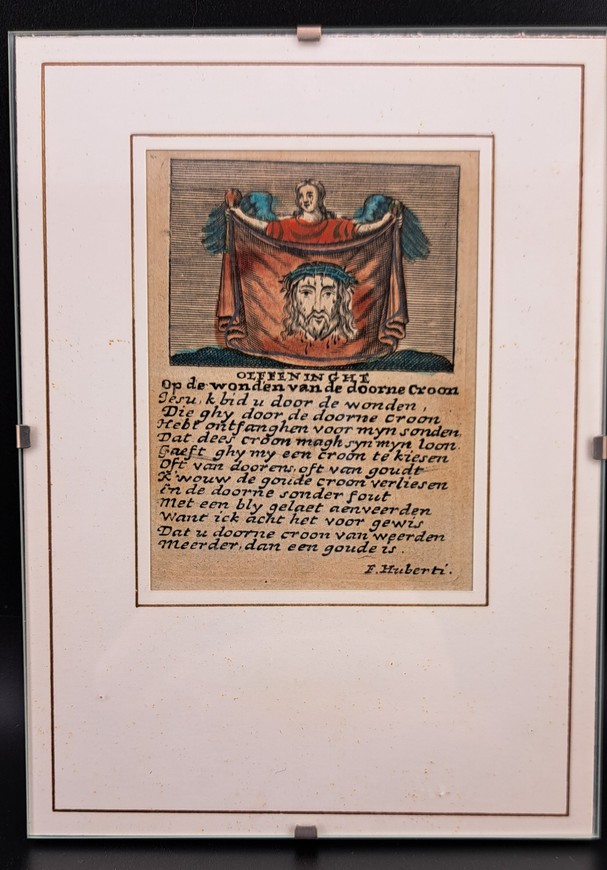 OEFFENINGHE
Op de wonden van de doorne Croon
Jesu, k bid u door de wonden,
Die ghy door de doorne croon
Hebt ontfanghen voor myn sonden,
Dat dees croon magh syn myn loon.
Gaeft ghy my een croon te kiesen
Oft van doorens, oft van goudt
K'wouw de goude croon verliesen
En de doorne sonder fout
Met een bly gelaet aenveerden
Want ick acht het voor gewis
Dat u doorne croon van weerden
Meerder, dan een goude is.
F. Huberti.